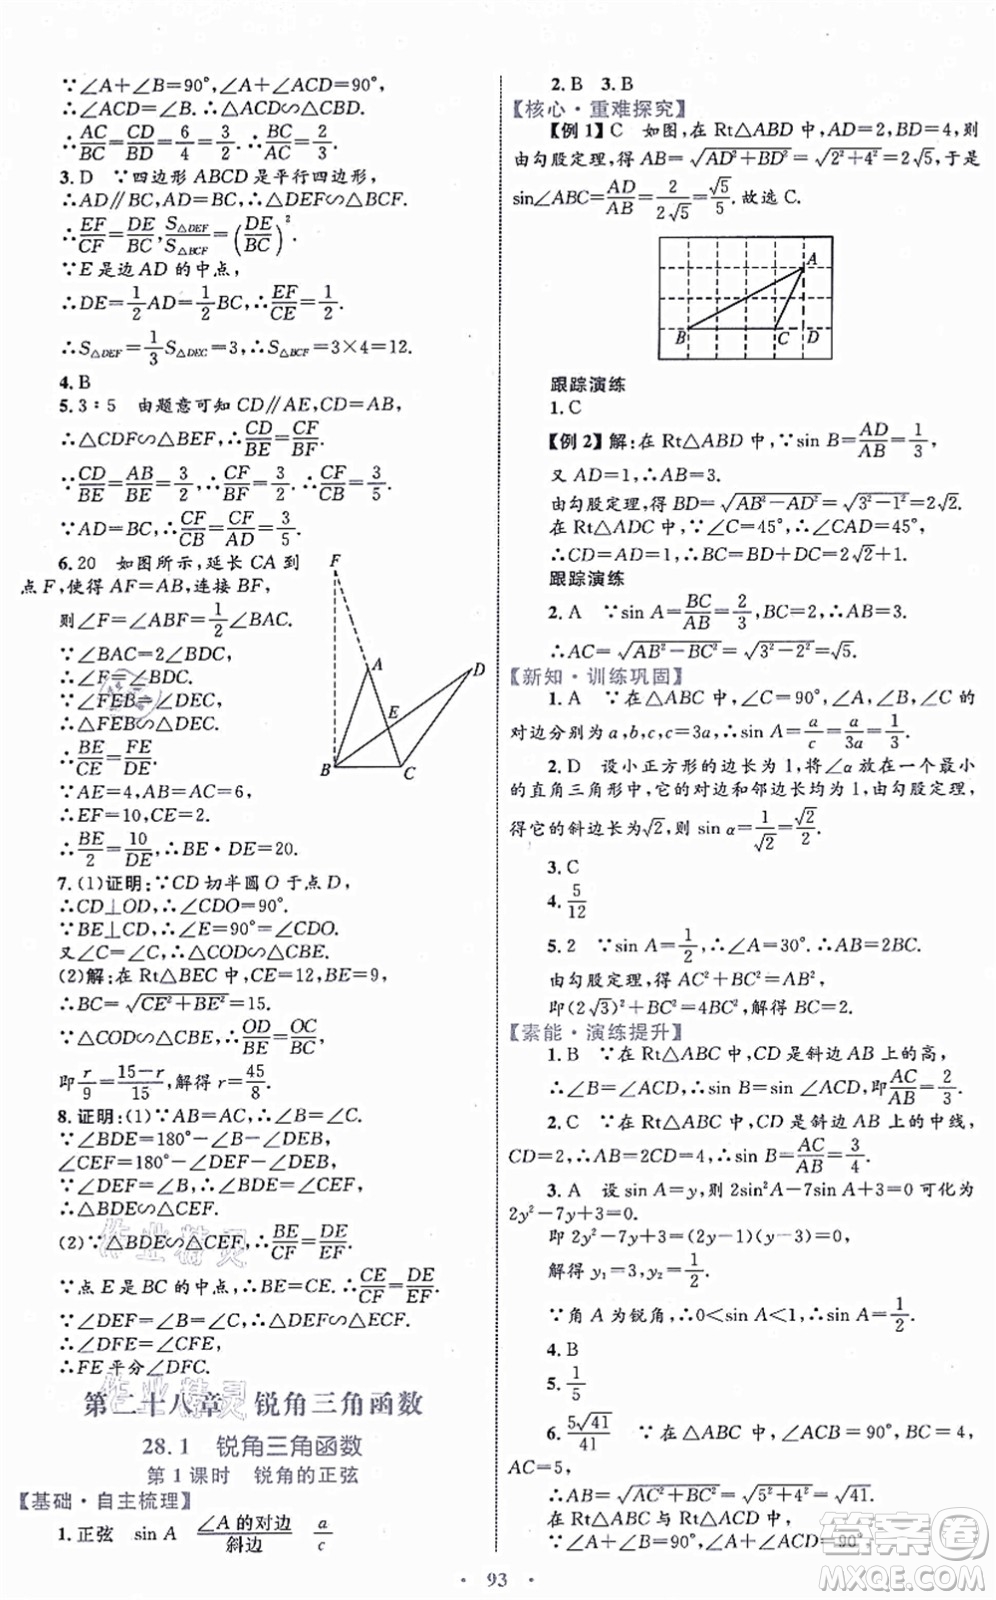 ∵∠A+∠B=90°,∠A+∠ACD=90°,
∴∠ACD=∠B.∴△ACD∽△CBD.
∴AC/BC=CD/BD=6/4=3/2.∴BC/AC=2/3.
3.D ∵四边形 ABCD 是平行四边形,
∴AD∥BC,AD=BC,∴△DEF∽△BCF.
∴EF/CF=DE/BC,S△DEF/S△BCF=(DE/BC)².
∵E是边AD的中点,
∴DE=1/2AD=1/2BC,∴EF/CE=1/2.
∴S△DEF=1/3S△DEC=3,∴S△BCF=3×4=12.
4.B
5.3∶5 由题意可知 CD∥AE,CD=AB,
∴△CDF∽△BEF,∴CD/BE=CF/BF.
∴CD/BE=AB/BE=3/2,∴CF/BF=3/2,∴CF/CB=3/5.
∵AD=BC,∴CF/CB=CF/AD=3/5.
6.20 如图所示,延长 CA 到
点F,使得AF=AB,连接BF,
则∠F=∠ABF=1/2∠BAC.
∵∠BAC=2∠DBC,
∴∠F=∠BDC.
∵∠FEB=∠DEC,
∴△FEB∽△DEC.
∴BE/CE=FE/DE.
∵AE=4,AB=AC=6,
∴EF=10,CE=2.
∴BE/2=10/DE,∴BE·DE=20.
F
A
D
E
B
C
7.(1)证明:∵CD 切半圆 O 于点 D,
∴CD⊥OD,∴∠CDO=90°.
∵BE⊥CD,∴∠E=90°=∠CDO.
又∠C=∠C,∴△COD∽△CBE.
(2)解:在 Rt△BEC 中,CE=12,BE=9,
∴BC=√(CE²+BE²)=15.
∵△COD∽△CBE,∴OD/BE=OC/BC,
即r/9=(15-r)/15,解得 r=45/8.
8.证明:(1)∵AB=AC,∴∠B=∠C.
∵∠BDE=180°-∠B-∠DEB,
∠CEF=180°-∠DEF-∠DEB,
∵∠DEF=∠B,∴∠BDE=∠CEF.
∴△BDE∽△CEF.
(2)∵△BDE∽△CEF,∴BE/CF=DE/EF.
∵点 E 是 BC 的中点,∴BE=CE,∴CE/CF=DE/EF.
∵∠DEF=∠B=∠C,∴△DEF∽△ECF.
∴∠DFE=∠CFE,
∴FE平分∠DFC.
第二十八章 锐角三角函数
28.1 锐角三角函数
第1课时 锐角的正弦
【基础·自主梳理】
1.正弦 sin A ∠A的对边/斜边 a/c
2.B 3.B
【核心·重难探究】
【例1】C 如图,在 Rt△ABD 中,AD=2,BD=4,则
由勾股定理,得 AB=√(AD²+BD²)=√(2²+4²)=2√5,于是
sin∠ABC=AD/AB=2/(2√5)=√5/5.故选 C.
A
B
C
D
跟踪演练
1.C
【例2】解:在 Rt△ABD 中,∵sin B=AD/AB=1/3,
又 AD=1,∴AB=3.
由勾股定理,得 BD=√(AB²-AD²)=√(3²-1²)=2√2.
在 Rt△ADC 中,∵∠C=45°,∴∠CAD=45°,
∴DC=AD=1,∴BC=BD+DC=2√2+1.
跟踪演练
2.A ∵sin A=BC/AB=2/3,BC=2,∴AB=3.
∴AC=√(AB²-BC²)=√(3²-2²)=√5.
【新知·训练巩固】
1.A ∵在△ABC 中,∠C=90°,∠A,∠B,∠C 的
对边分别为 a,b,c,c=3a,∴sin A=a/c=a/3a=1/3.
2.D 设小正方形的边长为 1,将∠α放在一个最小
的直角三角形中,它的对边和邻边长均为1,由勾股定理,
得它的斜边长为√2,则 sin α=1/√2=√2/2.
3.C
4.5/12
5.2 ∵sin A=1/2,∴∠A=30°.∴AB=2BC.
由勾股定理,得 AC²+BC²=AB²,
即(2√3)²+BC²=4BC²,解得 BC=2.
【素能·演练提升】
1.B ∵在 Rt△ABC 中,CD是斜边AB上的高,
∴∠B=∠ACD,∴sin B=sin∠ACD,即AC/AB=2/3.
2.C ∵在 Rt△ABC 中,CD 是斜边 AB 上的中线,
CD=2,∴AB=2CD=4,∴sin B=AC/AB=3/4.
3.A 设 sin A=y,则 2sin²A-7sin A+3=0 可化为
2y²-7y+3=0.
即 2y²-7y+3=(y-3)(2y-1)=0,
解得 y₁=3,y₂=1/2.
∵角 A 为锐角,∴0<sin A<1,∴sin A=1/2.
4.B
5.1/4
6.5√41/41 ∵在 Rt△ABC 中,∠C=90°,BC=4,
AC=5,
∴AB=√(AC²+BC²)=√(5²+4²)=√41.
∵在 Rt△ABC 与 Rt△ACD 中,
∠ACB=90°,∠ADC=90°,
作业精灵
作业精灵
答案圈
MXQE.COM
· 93 ·